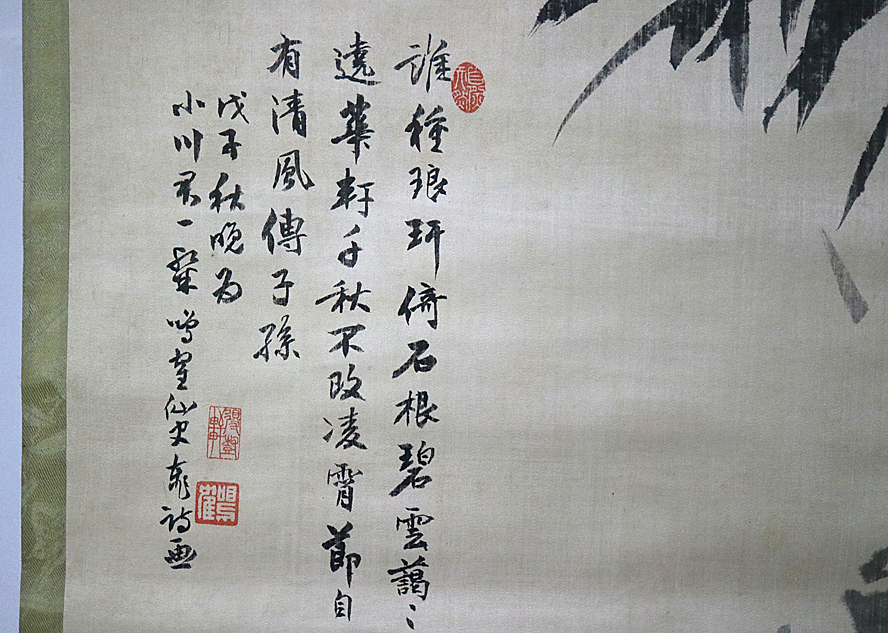 誰種琅玕倚石根碧雲藹〻
遶華軒千秋不改凌霄節自
有清風傳子孫
戊子秋晚為
小川君一粲 鳴皇仙史 詩画